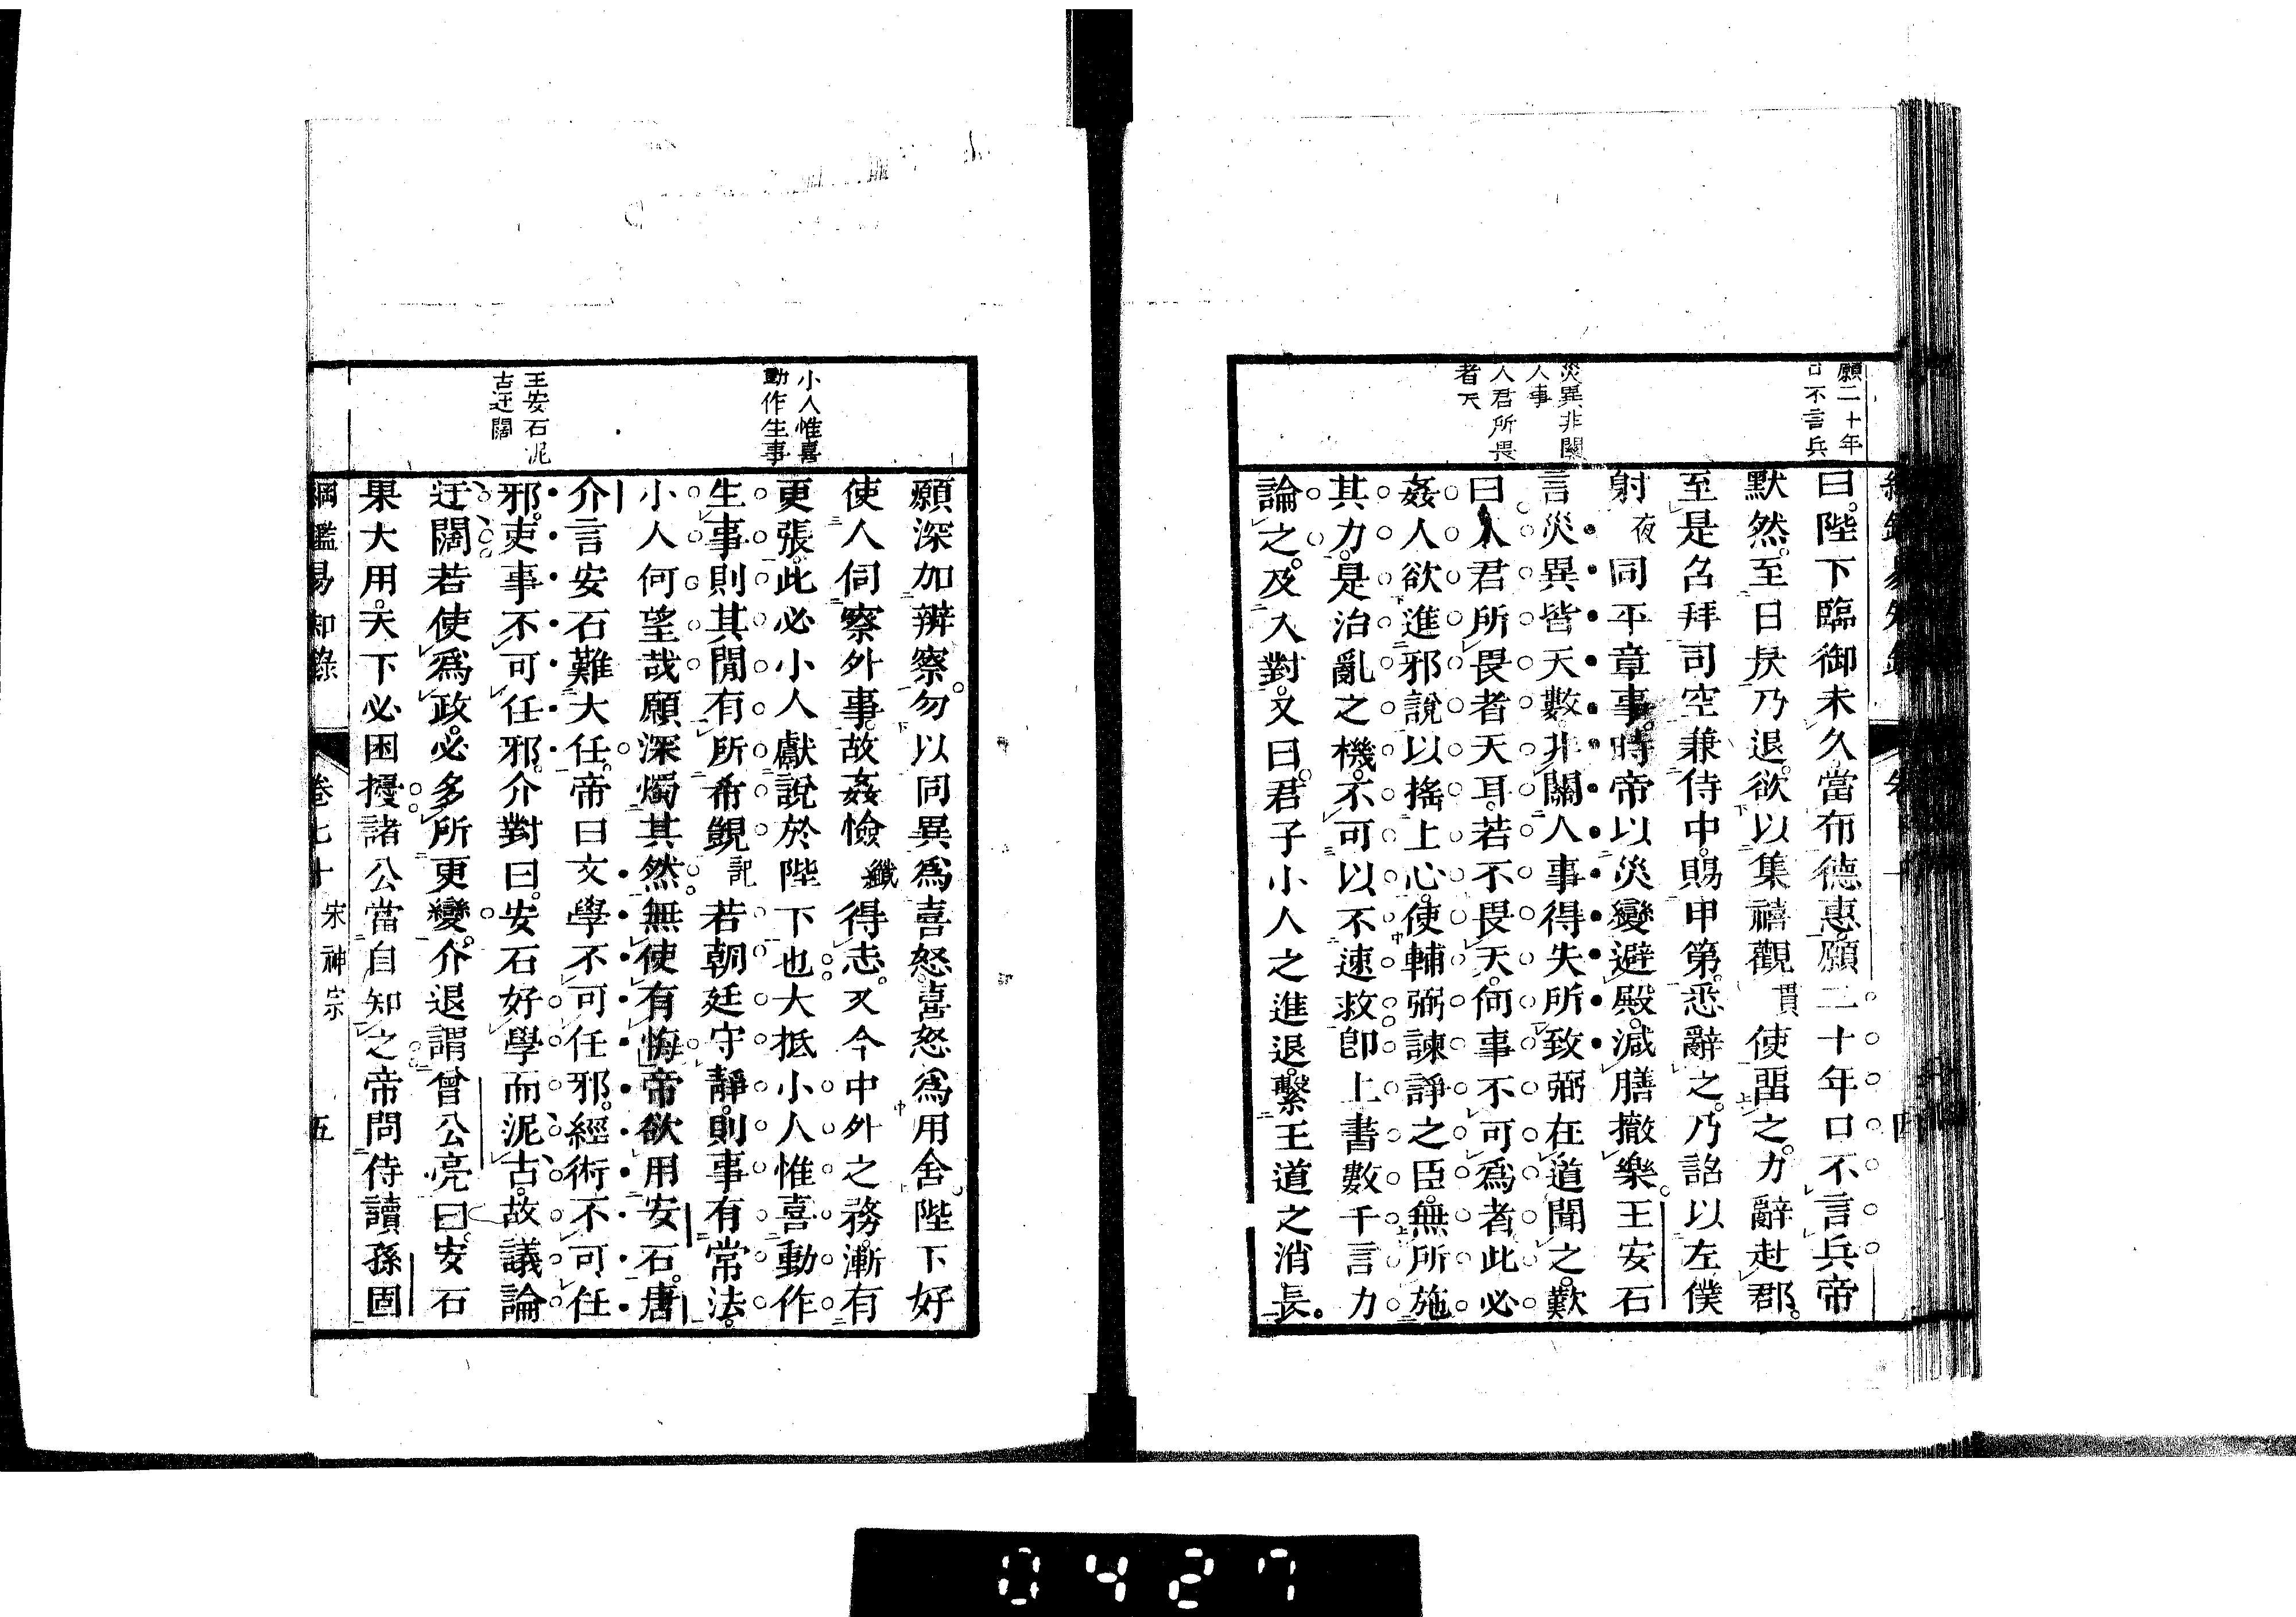 願二十年
口不言兵
災異非關
人事
人君所畏
者天
曰。陛下臨御未久當布德惠。願二十年口不言兵帝
默然。至日昃乃退。欲以集禧觀貫使畱之。力辭赴郡。
至是召拜司空兼侍中。賜甲第。悉辭之。乃詔以左僕
射夜同平章事。時帝以災變避殿。減膳撤樂。王安石
言災異皆天數。非關人事得失所致弼在道聞之。歎
曰人君所畏者天耳。若不畏天。何事不可爲者此必
姦人欲進邪說以搖上心。使輔弼諫諍之臣。無所施
其力。是治亂之機。不可以不速救卽上書數千言力
論之。及入對。又曰。君子小人之進退。繫王道之消長。
小人惟喜
動作生事
王安石泥
古迂闊
願深加辨察。勿以同異爲喜怒。喜怒爲用舍。陛下好
使人伺察外事。故姦憸纖得志。又今中外之務。漸有
更張。此必小人獻說於陛下也大抵小人惟喜動作
生事則其閒有所希覬記若朝廷守靜。則事有常法。
小人何望哉願深燭其然。無使有悔帝欲用安石。唐
介言安石難大任。帝曰文學不可任邪。經術不可任
邪。吏事不可任邪。介對曰。安石好學而泥古。故議論
迂闊若使爲政。必多所更變。介退謂曾公亮曰。安石
果大用。天下必困擾諸公當自知之帝問侍讀孫固
綱鑑易知錄
卷七十
宋神宗
五
0427